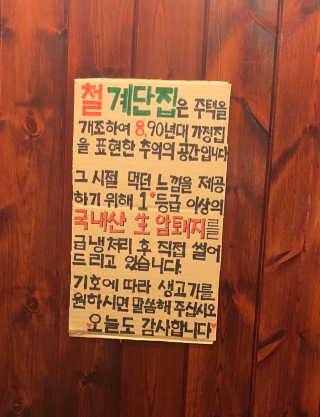 철 계단집은 주택을
개조하여 8,90년대 가정집
을 표현한 추억의 공간입니다
그 시절 먹던 느낌을 제공
하기 위해 1등급 이상의
국내산 生 암퇘지를
급냉처리 후 직접 썰어
드리고 있습니다.
기호에 따라 생고기를
원하시면 말씀해 주십시오
"오늘도 감사합니다"